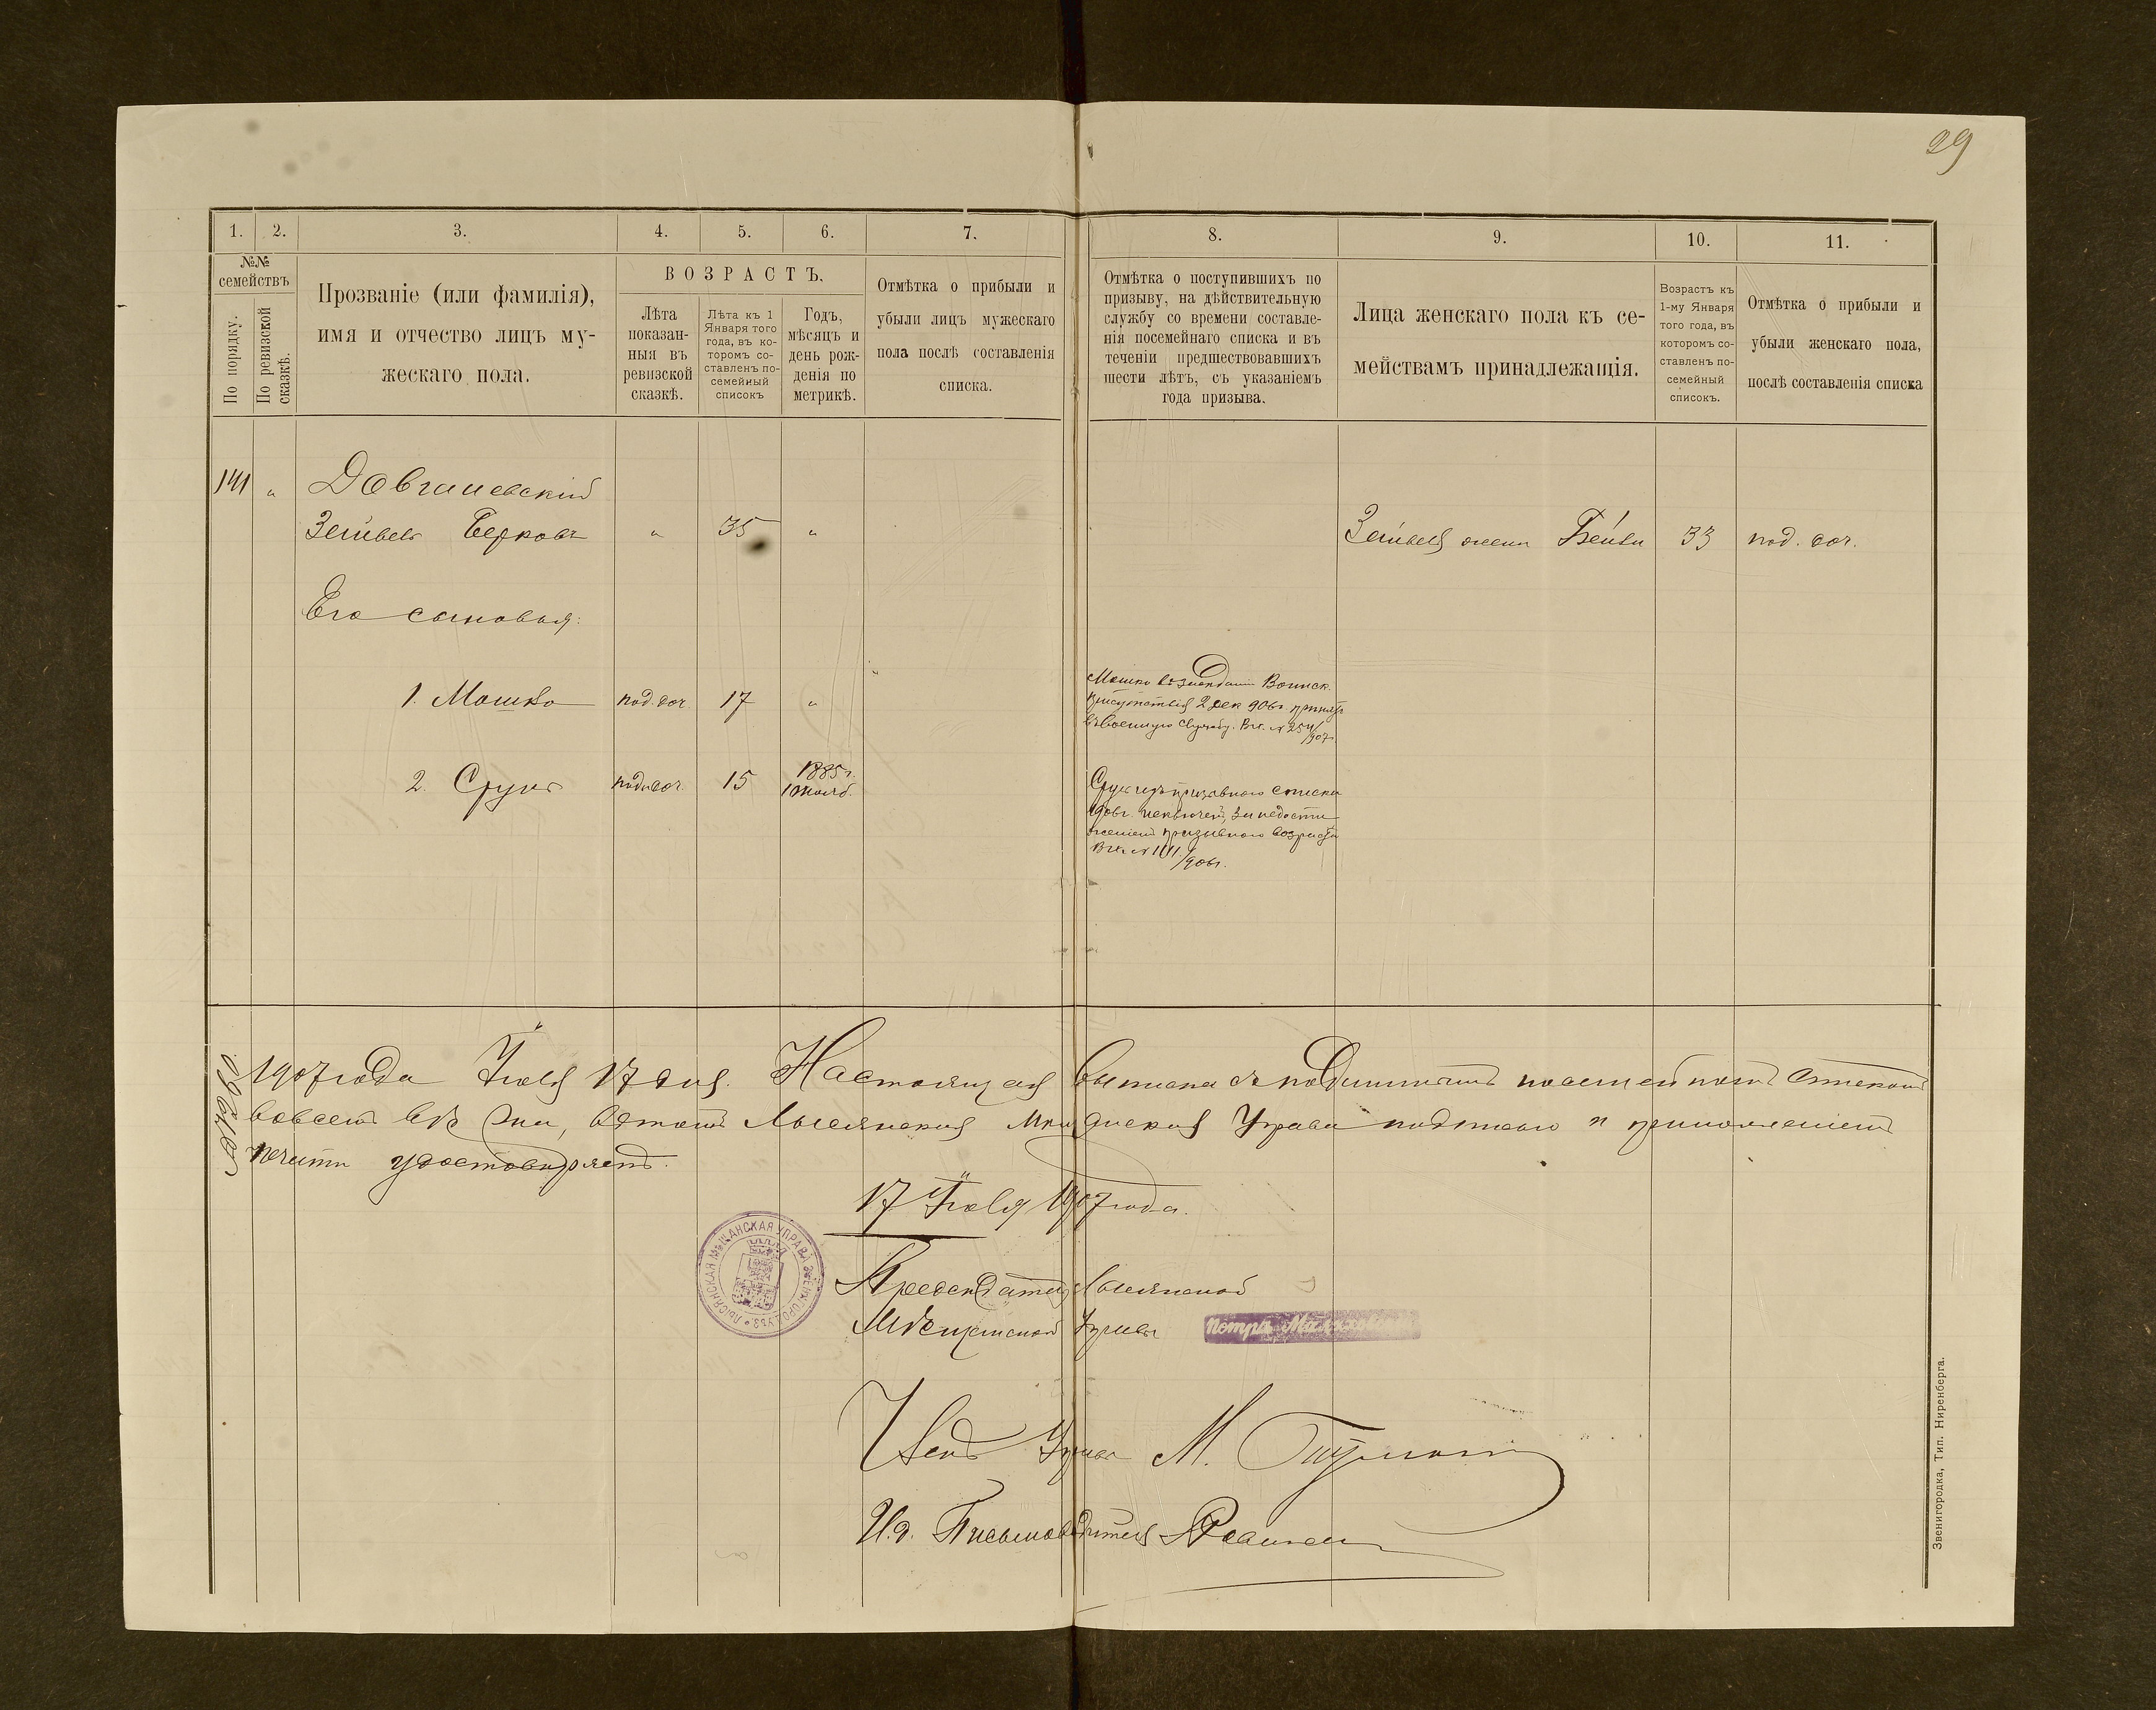 29
1. 2. 3. 4. 5. 6. 7. 8. 9. 10. 11.
№№ семействъ
По порядку.
По ревизской сказкѣ.
Прозваніе (или фамилія),
имя и отчество лицъ му-
жескаго пола.
ВОЗРАСТЪ.
Лѣта
показан-
ныя въ
ревизской
сказкѣ.
Лѣта къ 1
Января того
года, въ ко-
торомъ со-
ставленъ по-
семейный
списокъ
Годъ,
мѣсяцъ и
день рож-
денія по
метрикѣ.
Отмѣтка о прибыли и
убыли лицъ мужескаго
пола послѣ составленія
списка.
Отмѣтка о поступившихъ по
призыву, на дѣйствительную
службу со времени составле-
нія посемейнаго списка и въ
теченіи предшествовавшихъ
шести лѣтъ, съ указаніемъ
года призыва.
Лица женскаго пола къ се-
мействамъ принадлежащія.
Возрастъ къ
1-му Января
того года, въ
которомъ со-
ставленъ по-
семейный
списокъ.
Отмѣтка о прибыли и
убыли женскаго пола,
послѣ составленія списка
141 „ Довгалевскій
Зейвель Берковъ „ 35 „ Зейвеля жена Бейла 33 под. соч.
Его сыновья:
1. Мошко под. соч. 17 „
Мошко Воинск.
Присутствія 2 дек 906г. принятъ
въ военную службу. Вх. № 254/907г.
2. Сруль под. соч. 15 1885г.
Сруль изъ призывного списка
1906г. исключен, за недости
женіем призывного возраста
Вх. № /906г.
1907 года Іюля 17 дня. Настоящая выписка съ подлинным посемейным списком
вовсем вѣрна, в том Лысянская Мѣщанская Управа подписью и приложеніем
печати удостовѣряетъ.
17 Іюля 1907 года.
ЛЫСЯНСКАЯ МѢЩАНСКАЯ УПРАВА ЗВЕНИГОРОД. УѢЗ.
Председатель Лысянской
Мѣщанской Управы Петръ
Член Управы М.
И.д. Письмоводителя
Звенигородка, Тип. Ниренберга.